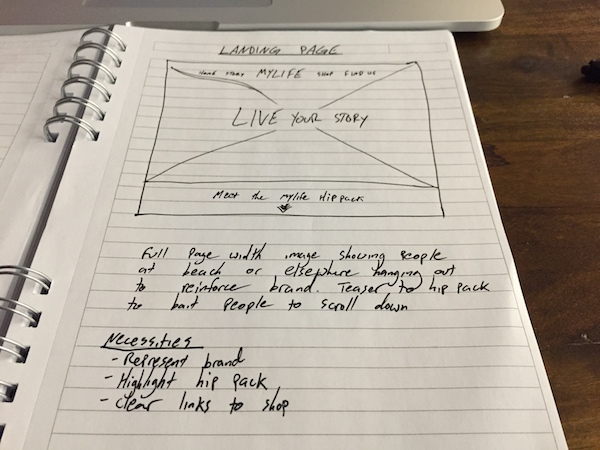 LANDING PAGE
HOME STORY MYLIFE SHOP FIND US
LIVE YOUR STORY
Meet the mylife Hip pack
Full page width image showing people
at beach or elsewhere hanging out
to reinforce brand. Teaser to hip pack
to bait people to scroll down
Necessities
- Represent brand
- Highlight hip pack
- clear links to shop